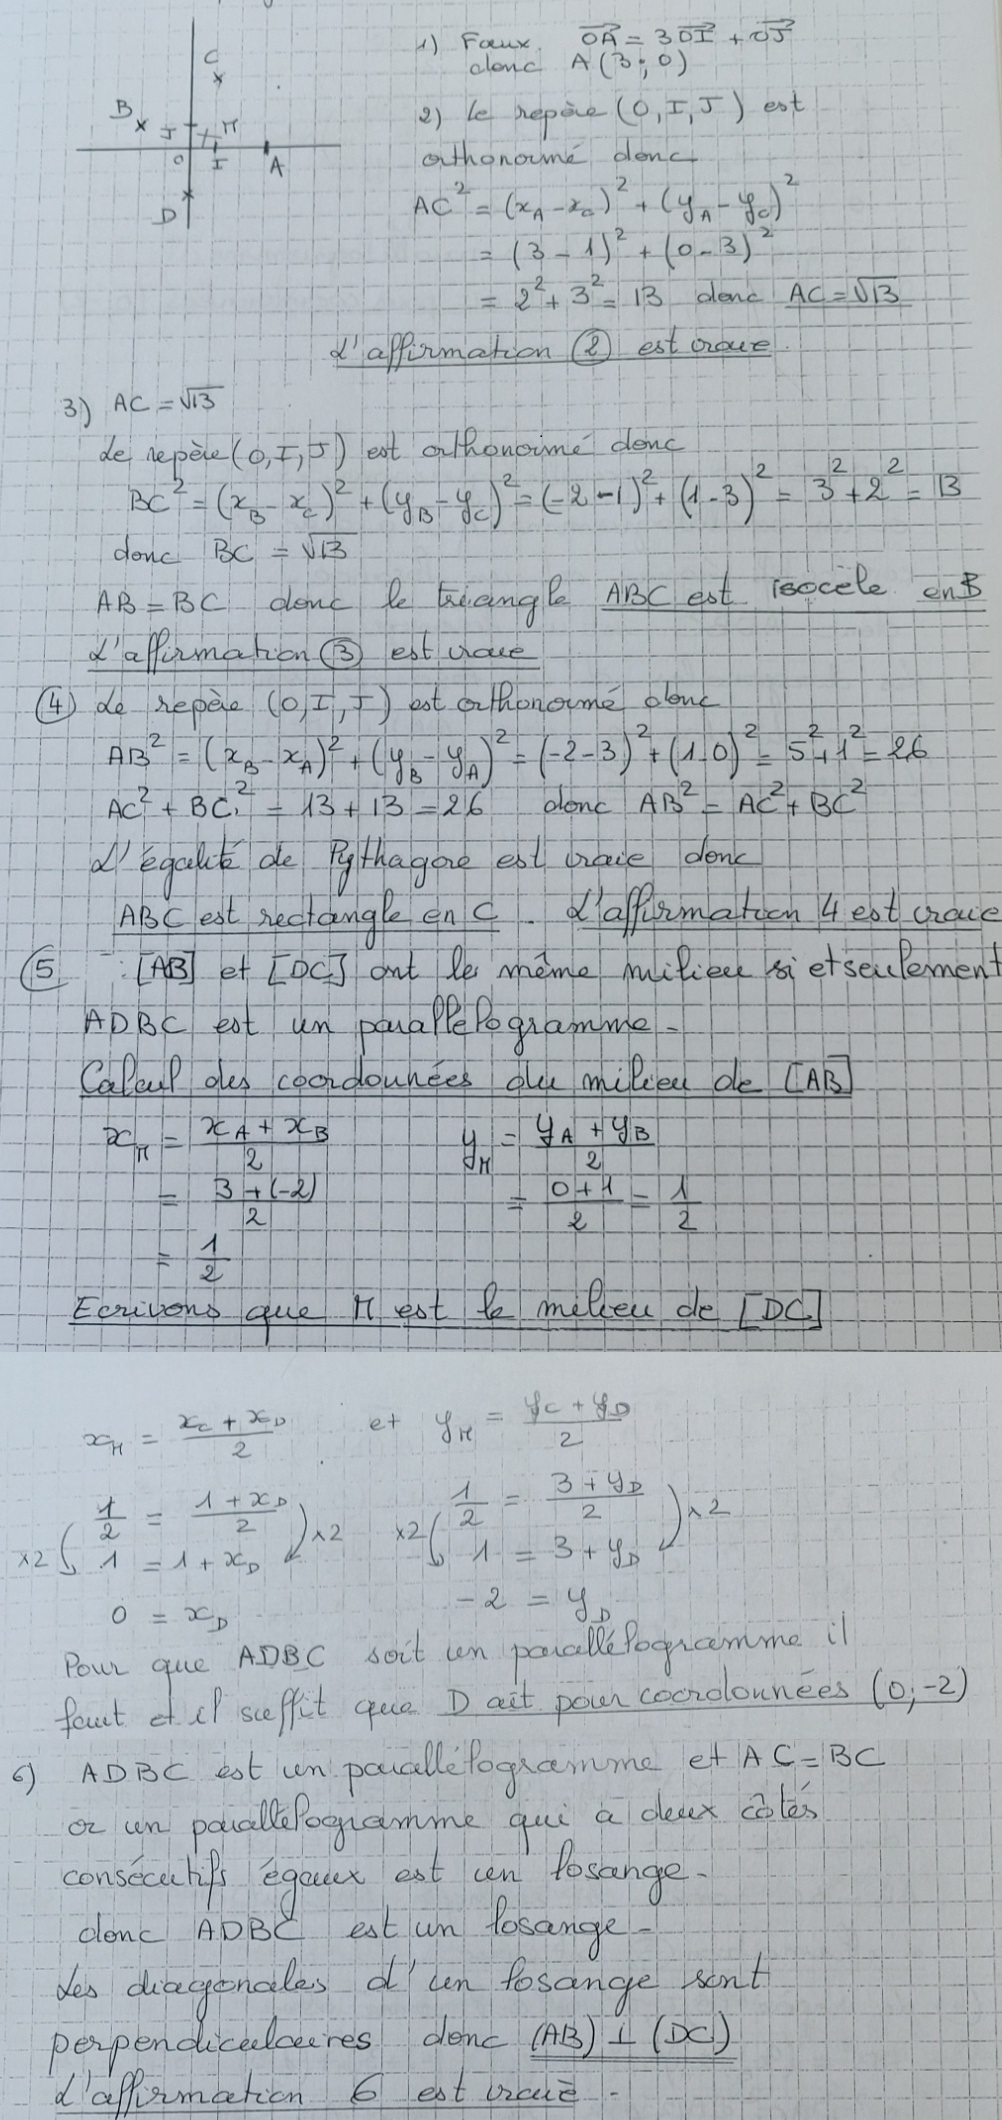 C
B
J
M
O
I
A
D
1) Faux. OA→ = 3OI→ + OJ→
donc A(3;0)
2) Le repère (O,I,J) est
orthonormé donc
AC² = (x_A - x_C)² + (y_A - y_C)²
= (3 - 1)² + (0 - 3)²
= 2² + 3² = 13 donc AC = √13
L'affirmation ② est vraie.
3) AC = √13
Le repère (O,I,J) est orthonormé donc
BC² = (x_B - x_C)² + (y_B - y_C)² = (-2 - 1)² + (1 - 3)² = 3² + 2² = 13
donc BC = √13
AB = BC donc le triangle ABC est isocèle en B
L'affirmation ③ est vraie
④ Le repère (O,I,J) est orthonormé donc
AB² = (x_B - x_A)² + (y_B - y_A)² = (-2 - 3)² + (1 - 0)² = 5² + 1² = 26
AC² + BC² = 13 + 13 = 26 donc AB² = AC² + BC²
L'égalité de Pythagore est vraie donc
ABC est rectangle en C. L'affirmation 4 est vraie
⑤ : [AB] et [DC] ont le même milieu si et seulement
ADBC est un parallélogramme -
Calcul des coordonnées du milieu de [AB]
x_M = (x_A + x_B)/2 y_M = (y_A + y_B)/2
= (3 + (-2))/2 = (0 + 1)/2 = 1/2
= 1/2
Ecrivons que M est le milieu de [DC]
x_M = (x_C + x_D)/2 et y_M = (y_C + y_D)/2
1/2 = (1 + x_D)/2 1/2 = (3 + y_D)/2
×2 1 = 1 + x_D ×2 ×2 1 = 3 + y_D ×2
0 = x_D -2 = y_D
Pour que ADBC soit un parallélogramme il
faut et il suffit que D ait pour coordonnées (0;-2)
6) ADBC est un parallélogramme et AC = BC
or un parallélogramme qui a deux côtés
consécutifs égaux est un losange -
donc ADBC est un losange -
Les diagonales d'un losange sont
perpendiculaires donc (AB) ⊥ (DC)
L'affirmation 6 est vraie -